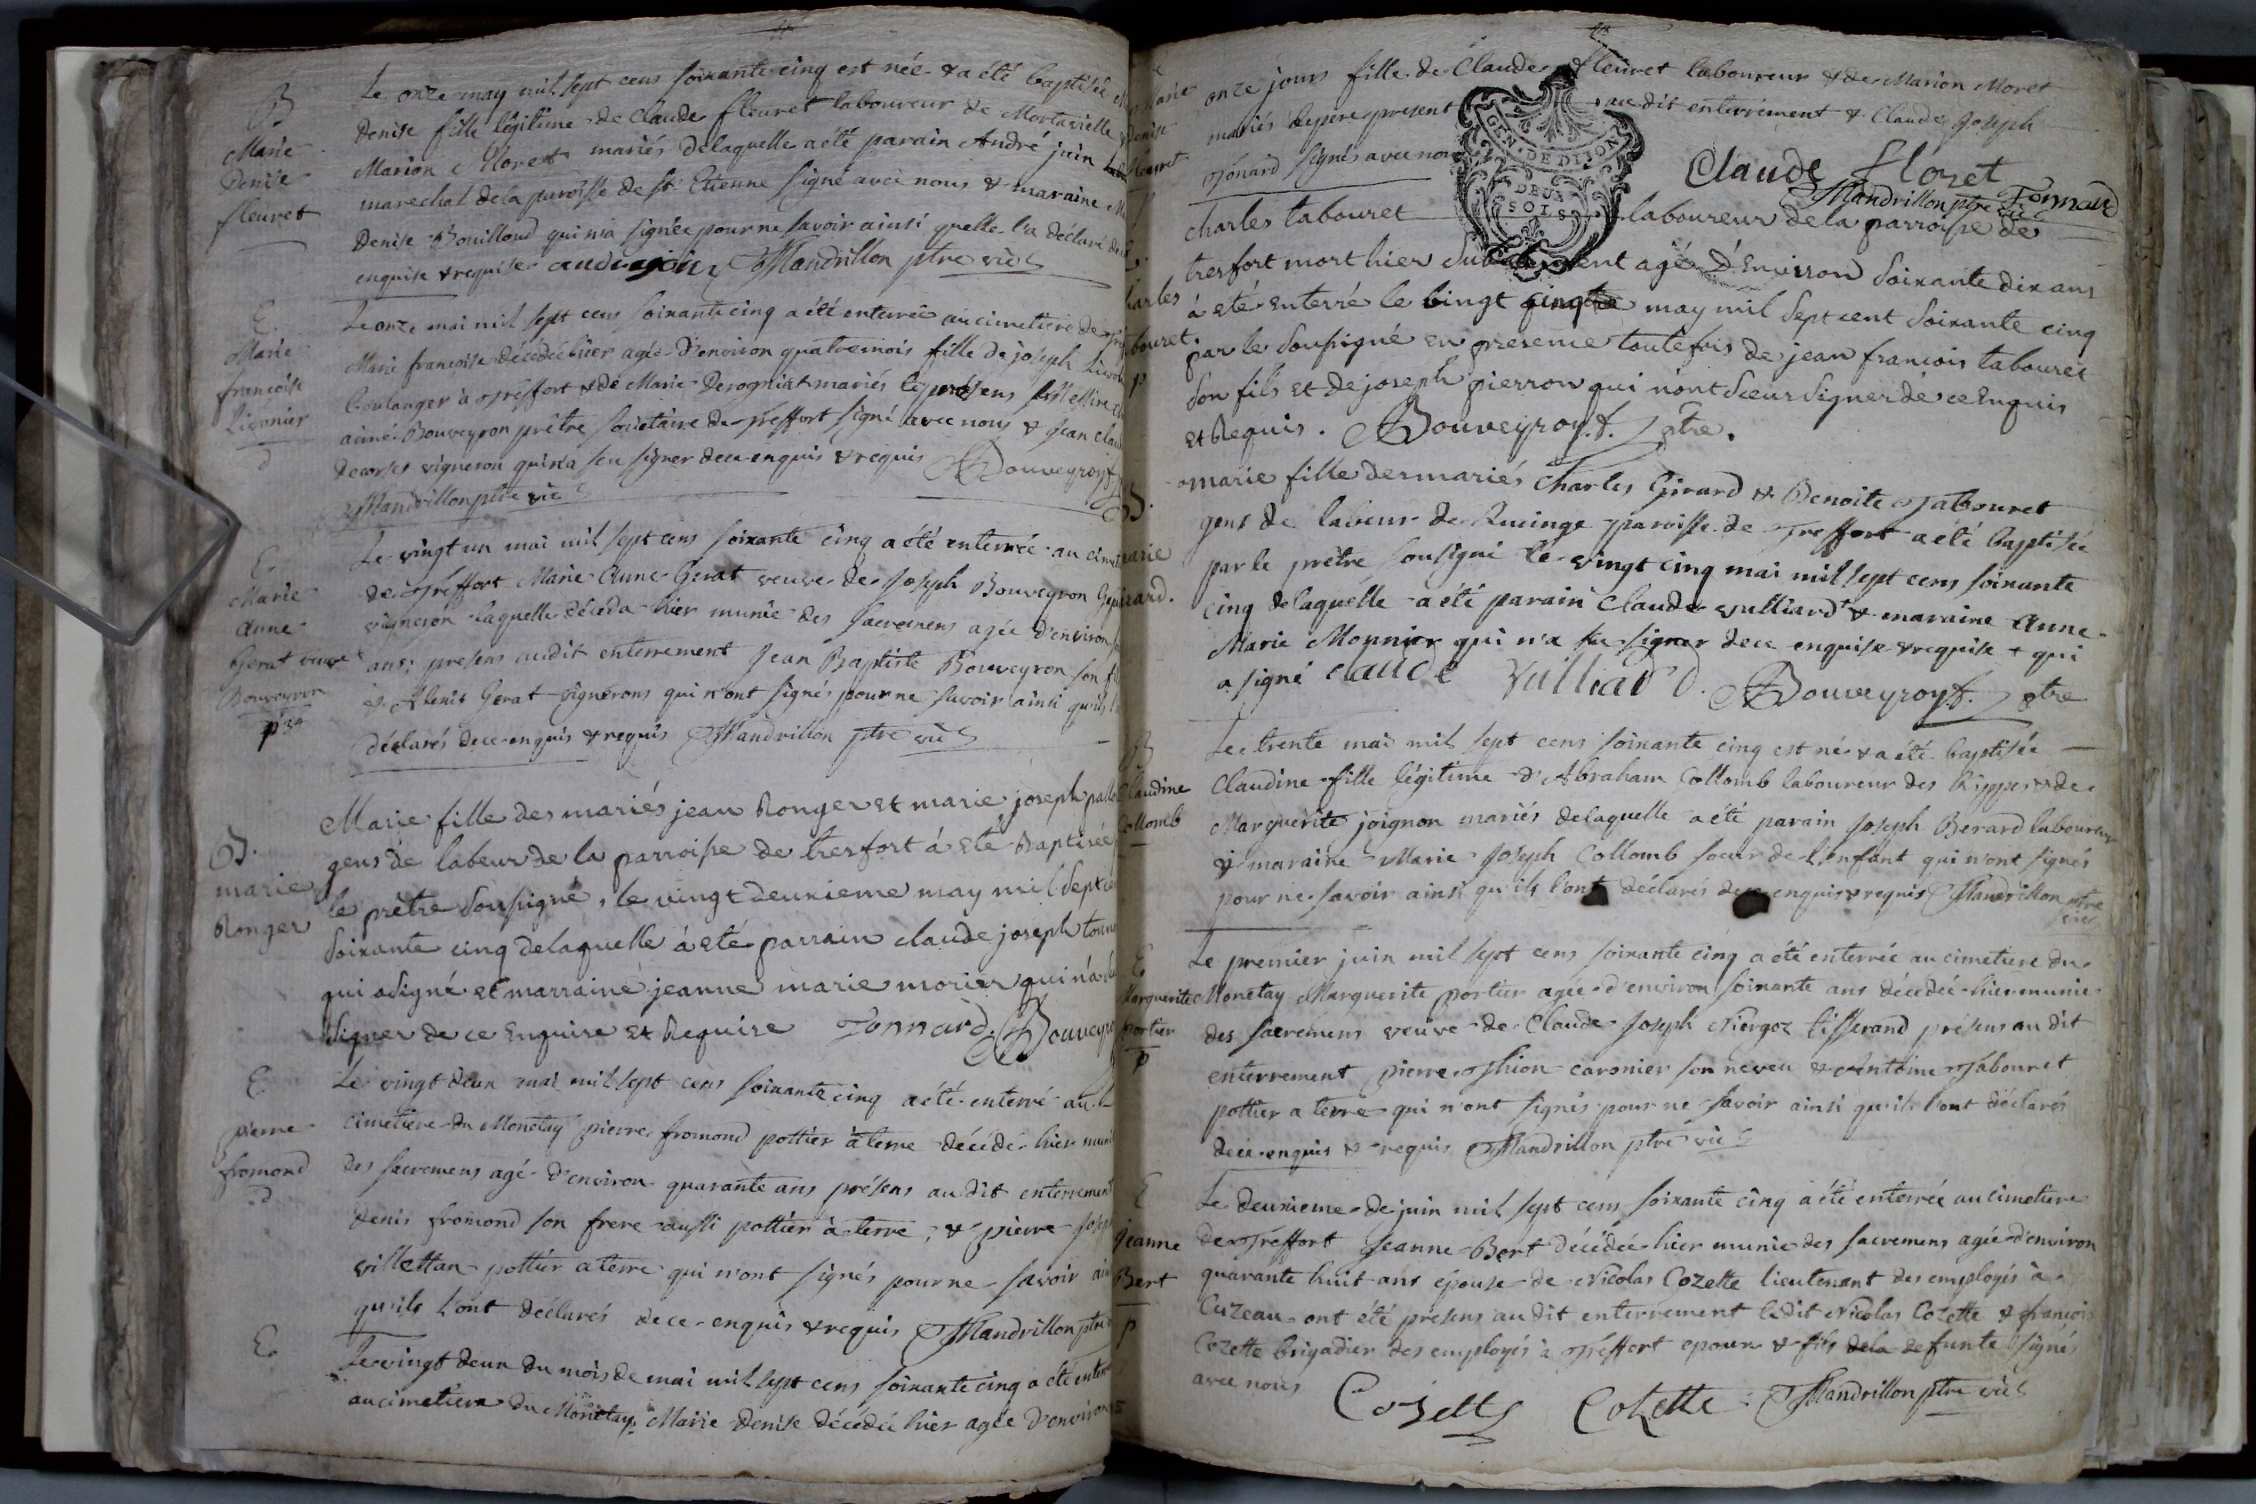 B
Marie
Denise
fleuret
Le onze may mil sept cens soixante cinq est née & a été baptisée
Denise fille légitime de Claude fleuret laboureur de Mortarielle &
Marion Moret mariés delaquelle a été parain André juin
marechal dela paroisse de St Etienne signé avec nous & maraine
Denise Bouilloud qui n'a signée pour ne savoir ainsi quelle l'a déclaré de
enquise & requise andre join Mandrillon ptre vic
E
Marie
francoise
Lionnier
d
Le onze mai mil sept cens soixante cinq a été enterrée au cimetiere de
Marie francoise décédée hier agée d'environ quatre mois fille de joseph
boulanger à Treffort & de Marie mariés les présens
aimé Bouveyron prêtre sociétaire de Treffort signé avec nous & Jean
decorses vigneron qui n'a seu signer de ce enquis & requis Bouveyron
Mandrillon ptre vic
E
Marie
Anne
Gerat veuve
Bouveyron
Le vingt un mai mil sept cens soixante cinq a été enterrée au
de Treffort Marie Anne Gerat veuve de Joseph Bouveyron
vigneron laquelle déceda hier munie des sacremens agée d'environ
ans; presens audit enterrement Jean Baptiste Bouveyron son
& Denis Gerat vignerons qui n'ont signés pour ne savoir ainsi qu'ils
déclarés de ce enquis & requis Mandrillon ptre vic
B.
marie
Ronger
Marie fille des mariés jean Ronger et marie joseph
gens de labeur de la parroisse de tresfort á eté Baptisée
le prêtre Sousigné, le vingt deuxieme may mil Sept
Soixante cinq delaquelle á eté parrain claude joseph
qui a signé et marraine jeanne marie morier qui n'a
signer de ce Enquise et Requise Tonnard Bouveyron
E
pierre
fromond
d
Le vingt deux mai mil sept cens soixante cinq a été enterré au
cimetiere du Monetay pierre fromond pottier à terre décédé hier muni
des sacremens agé d'environ quarante ans présens au dit enterrement
denis fromond son frere aussi pottier à terre, & pierre
villettan pottier a terre qui n'ont signés pour ne savoir
qu'ils l'ont déclarés de ce enquis & requis Mandrillon ptre
E
Le vingt deux du mois de mai mil sept cens soixante cinq a été
au cimetiere du Monetay Marie Denise décédée hier agée d'environ
Marie
Denise
fleuret
onze jours fille de Claude fleuret laboureur & de Marion Moret
mariés le pere present au dit enterrement & Claude Joseph
Tonard signés avec nous
GEN. DE DIJON
DEUX
SOLS
Claude floret
Mandrillon ptre vic Tonnard
Charles
tabouret
p
charles tabouret laboureur de la parroisse de
tresfort mort hier agé D'Environ Soixante dix ans
à eté enterré le vingt cinq may mil Sept cent Soixante cinq
par le Sousigné en presence toutefois de jean francois tabouret
Son fils et de joseph pierron qui n'ont sceu signer de ce Enquis
et Requis. Bouveyron. ptre.
B.
marie
girard.
marie fille des mariés Charles Girard & Benoite Tabouret
gens de labeur de Rucinge paroisse de Treffort a été baptisée
par le prêtre sousigné le vingt cinq mai mil sept cens soixante
cinq delaquelle a été parain Claude vulliard & maraine Anne
Marie Monnier qui n'a su signer de ce enquise & requise + qui
a signé claude Vulliard. Bouveyron. ptre
B
Claudine
Collomb
Le trente mai mil sept cens soixante cinq est né & a été baptisée
Claudine fille légitime d'Abraham Collomb laboureur des Rippes & de
Marguerite joignon mariés delaquelle a été parain Joseph Berard laboureur
& maraine Marie Joseph Collomb soeur de l'enfant qui n'ont signés
pour ne savoir ainsi qu'ils l'ont déclarés de ce enquis & requis Mandrillon ptre
vic
E
Marguerite
portier
p
Le premier juin mil sept cens soixante cinq a été enterrée au cimetiere du
Monetay Marguerite portier agée d'environ soixante ans décédée hier munie
des sacremens veuve de Claude Joseph tisserand présens au dit
enterrement pierre Thion caronier son neveu & Antoine Tabouret
pottier a terre qui n'ont signés pour ne savoir ainsi qu'ils l'ont déclarés
de ce enquis & requis Mandrillon ptre vic
E
Jeanne
Bert
p
Le deuxieme de juin mil sept cens soixante cinq a été enterrée au cimetiere
de Treffort Jeanne Bert décédée hier munie des sacremens agée d'environ
quarante huit ans épouse de Nicolas Cozette lieutenant des employés à
Cuzeau ont été présens au dit enterrement ledit Nicolas Cozette & francois
Cozette brigadier des employés à Treffort epoux & fils dela defunte signés
avec nous Cozette Cozette Mandrillon ptre vic